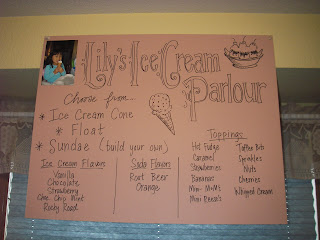 Lily's Ice Cream
Parlour
Choose from...
* Ice Cream Cone
* Float
* Sundae (build your own)
Ice Cream Flavors
Vanilla
Chocolate
Strawberry
Choc. Chip Mint
Rocky Road
Soda Flavors
Root Beer
Orange
Toppings
Hot Fudge
Caramel
Strawberries
Bananas
Mini M&M's
Mini Reese's
Toffee Bits
Sprinkles
Nuts
Cherries
Whipped Cream